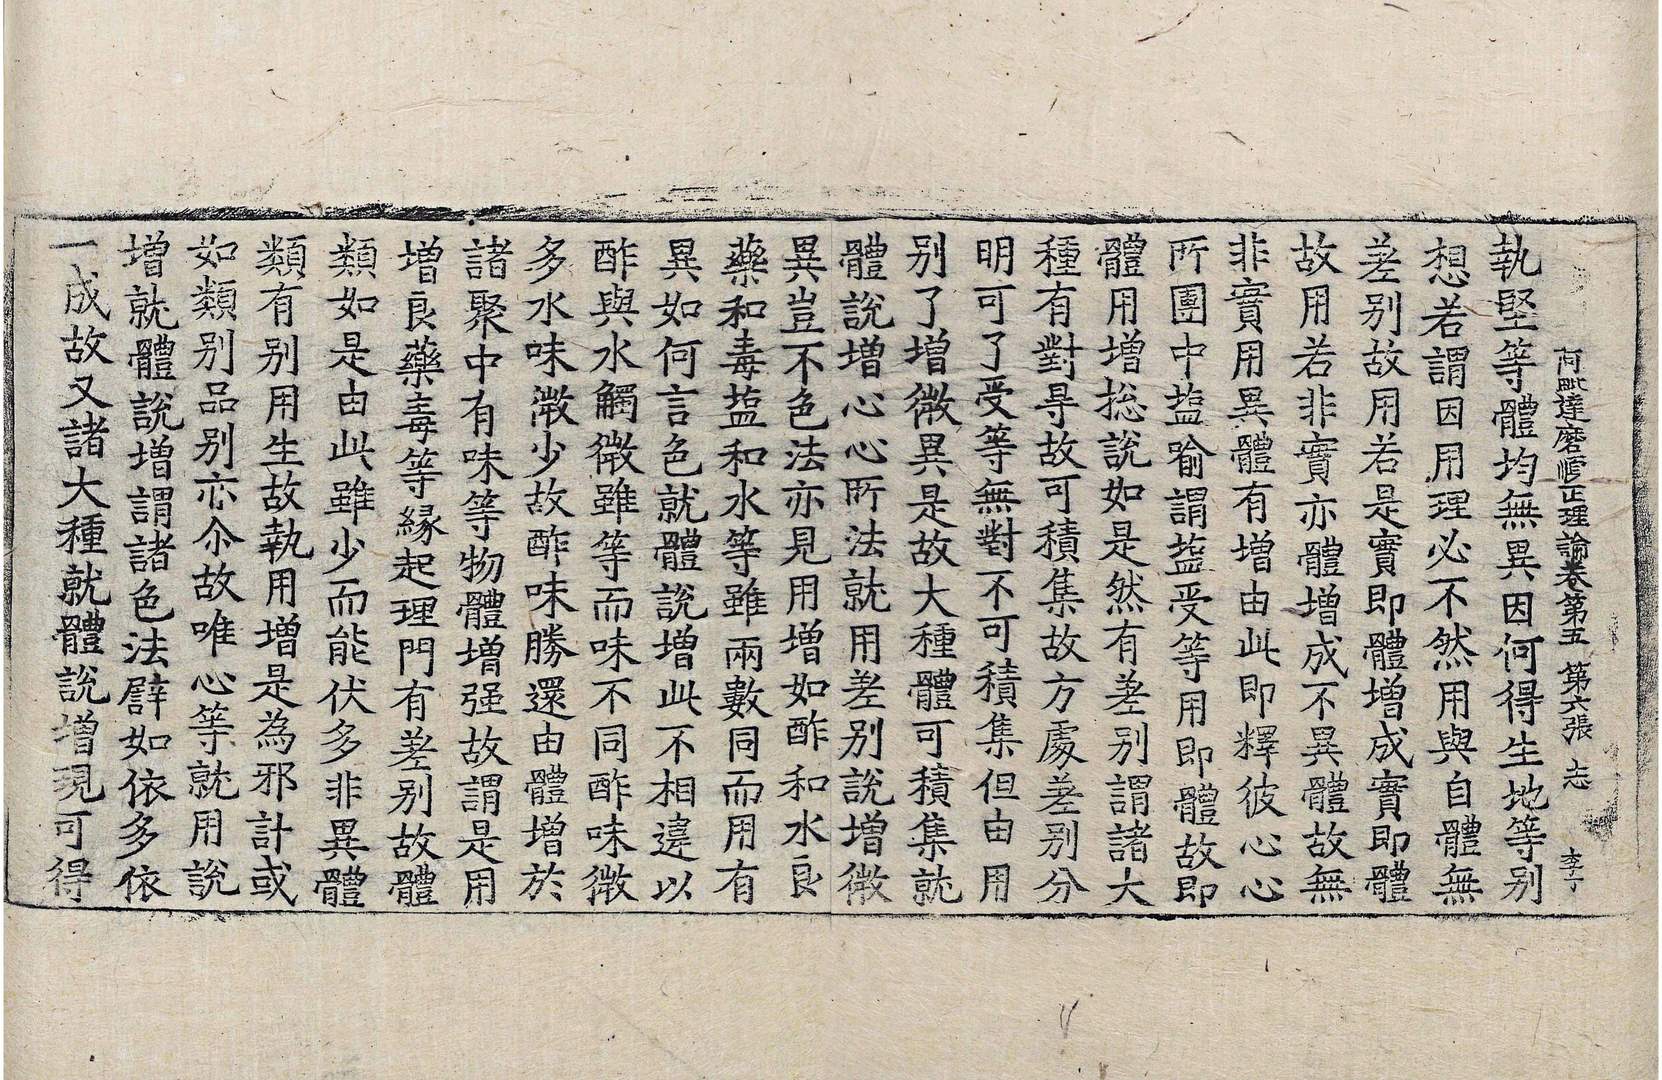 阿毗達磨順正理論卷第五　第六張　志　李丁
執堅等體均無異因何得生地等別
想若謂因用理必不然用與自體無
差別故用若是實即體增成實即體
故用若非實亦體增成不異體故無
非實用異體有增由此即釋彼心心
所團中塩喻謂塩受等用即體故即
體用增揔說如是然有差別謂諸大
種有對㝵故可積集故方處差別分
明可了受等無對不可積集但由用
別了增微異是故大種體可積集就
體說增心心所法就用差別說增微
異豈不色法亦見用增如酢和水良
藥和毒塩和水等雖兩數同而用有
異如何言色就體說增此不相違以
酢與水觸微雖等而味不同酢味微
多水味微少故酢味勝還由體增於
諸聚中有味等物體增强故謂是用
增良藥毒等緣起理門有差別故體
類如是由此雖少而能伏多非異體
類有別用生故執用增是為邪計或
如類別品別亦尒故唯心等就用說
增就體說增謂諸色法譬如依多依
一成故又諸大種就體說增現可得